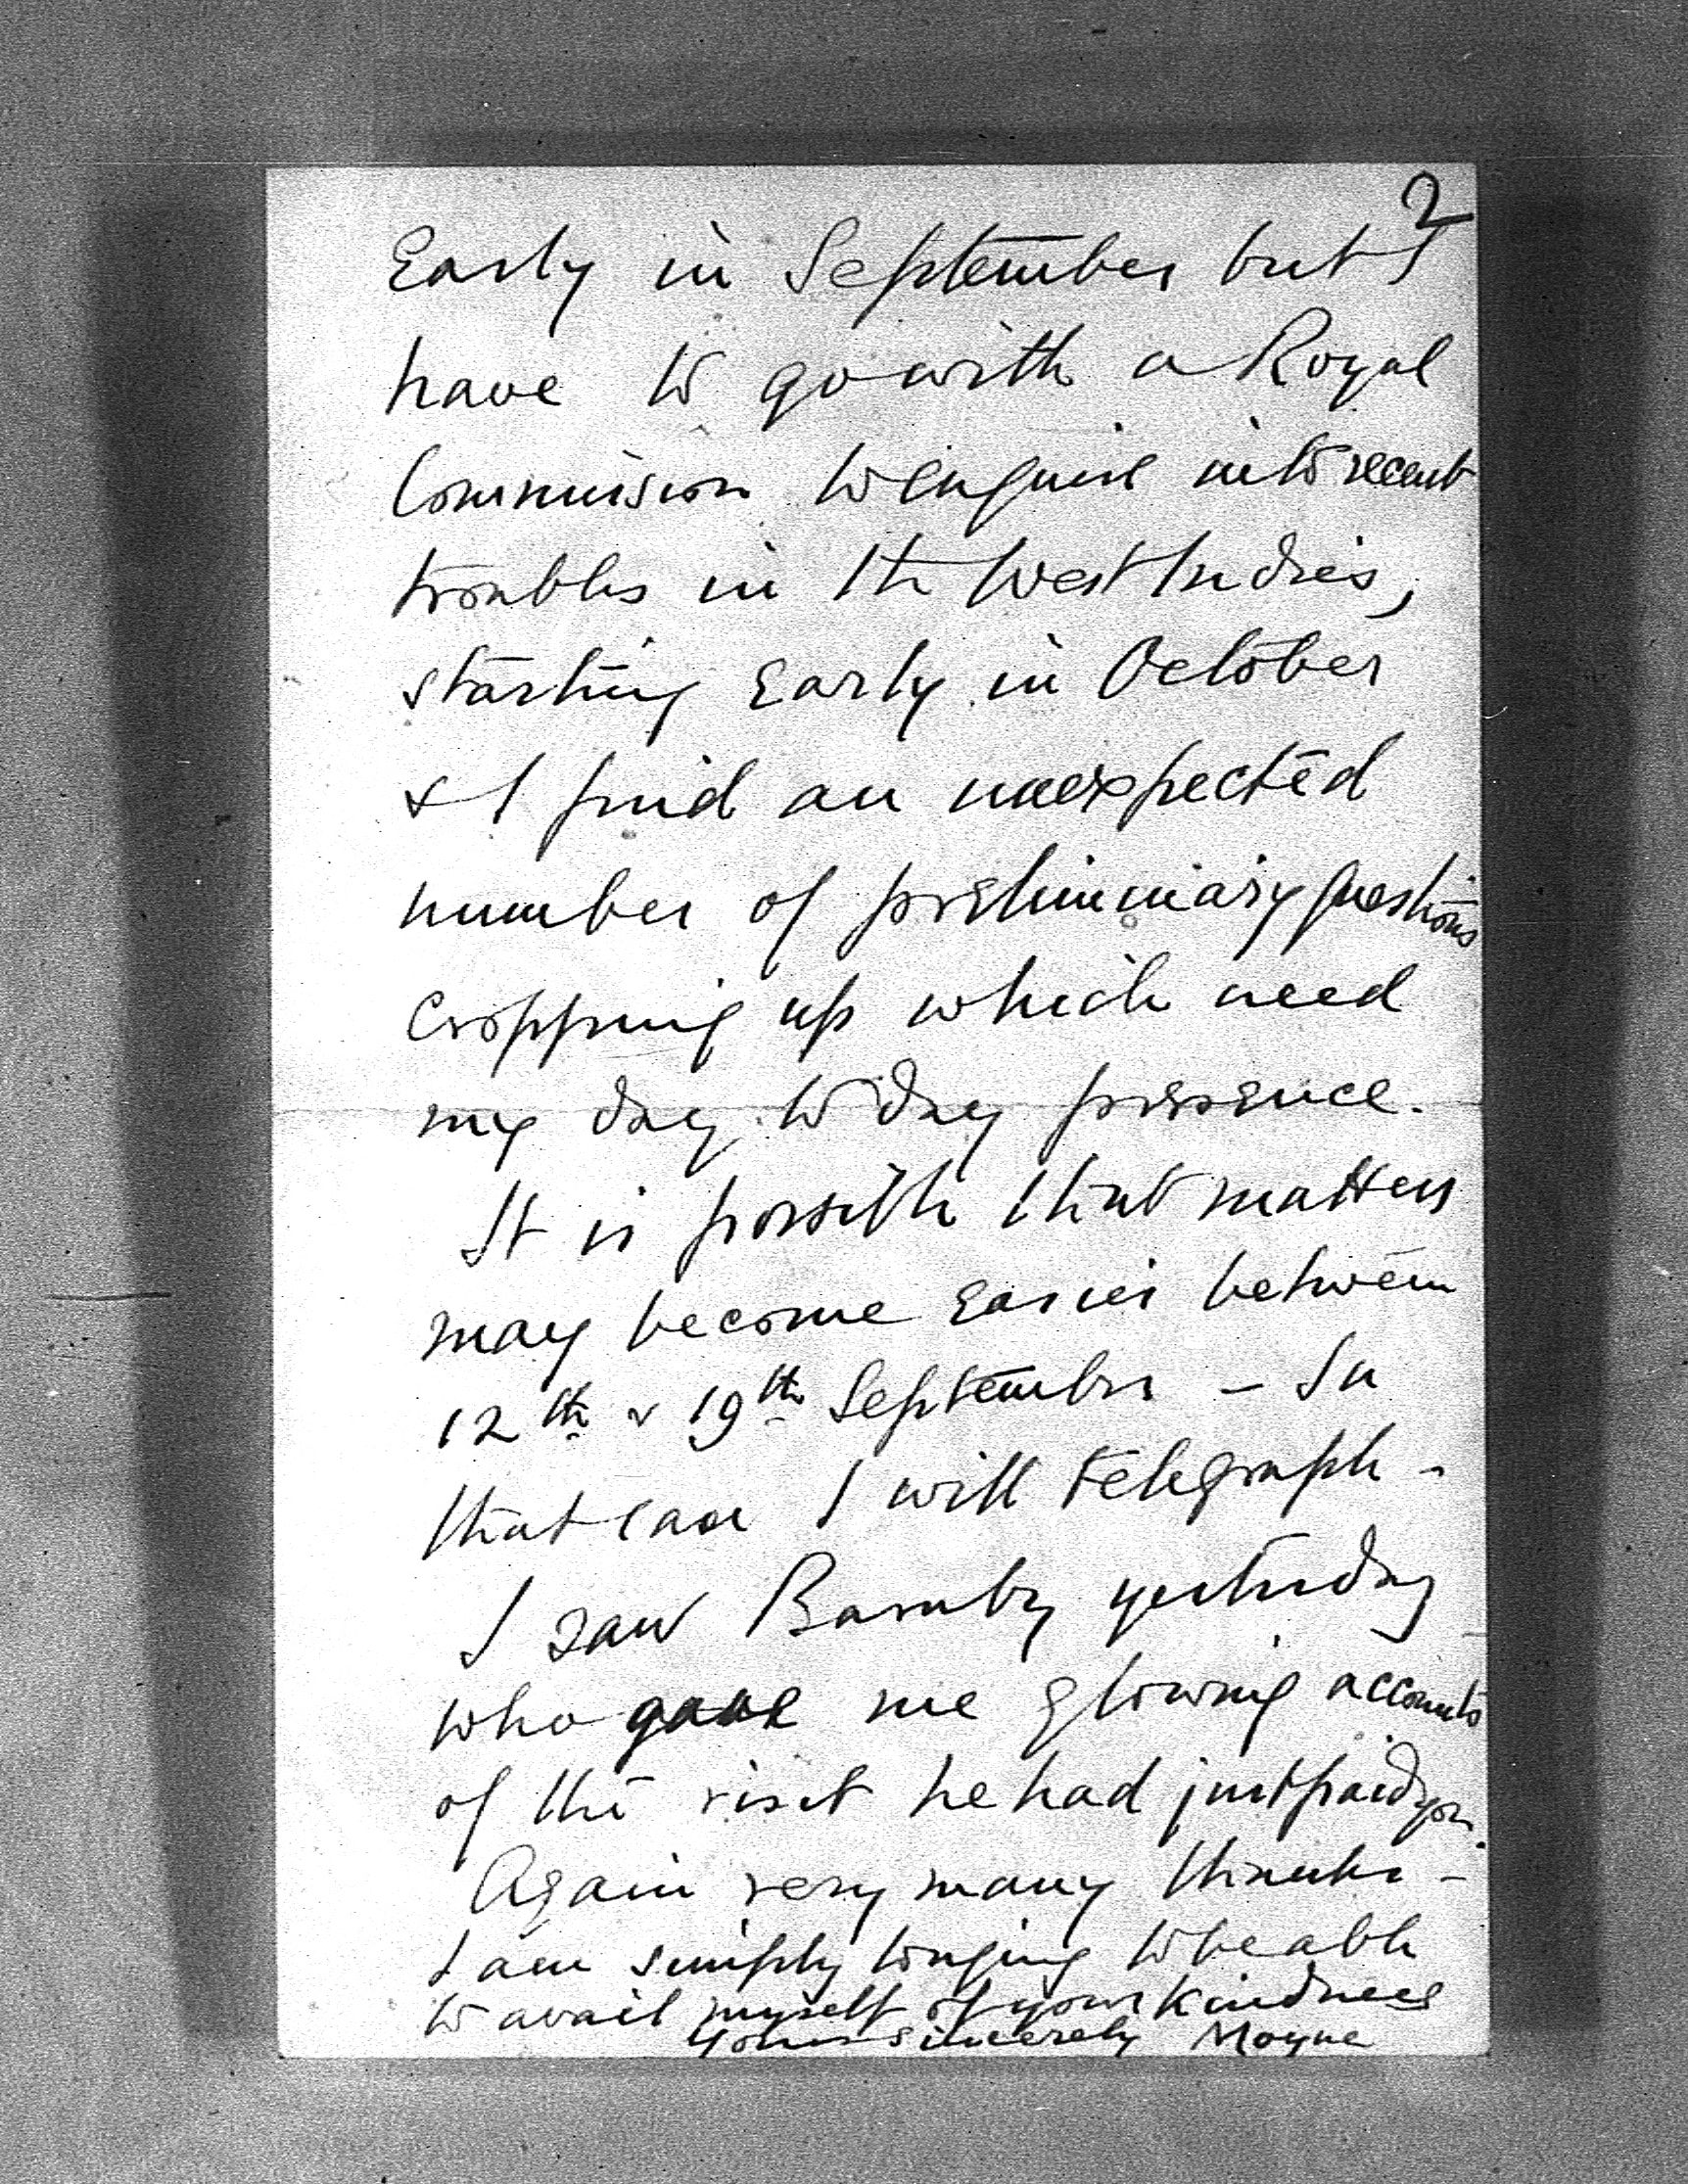 2
Early in September but I
have to go with a Royal
Commission to enquire into recent
troubles in the West Indies,
starting early in October
& I find an unexpected
number of preliminary questions
cropping up which need
my day to day presence.
It is possible that matters
may become easier between
12th & 19th September – In
that case I will telegraph –
I saw Barnby yesterday
who gave me glowing accounts
of the visit he had just paid you.
Again very many thanks –
I am simply longing to be able
to avail myself of your kindness
Yours sincerely Moyne